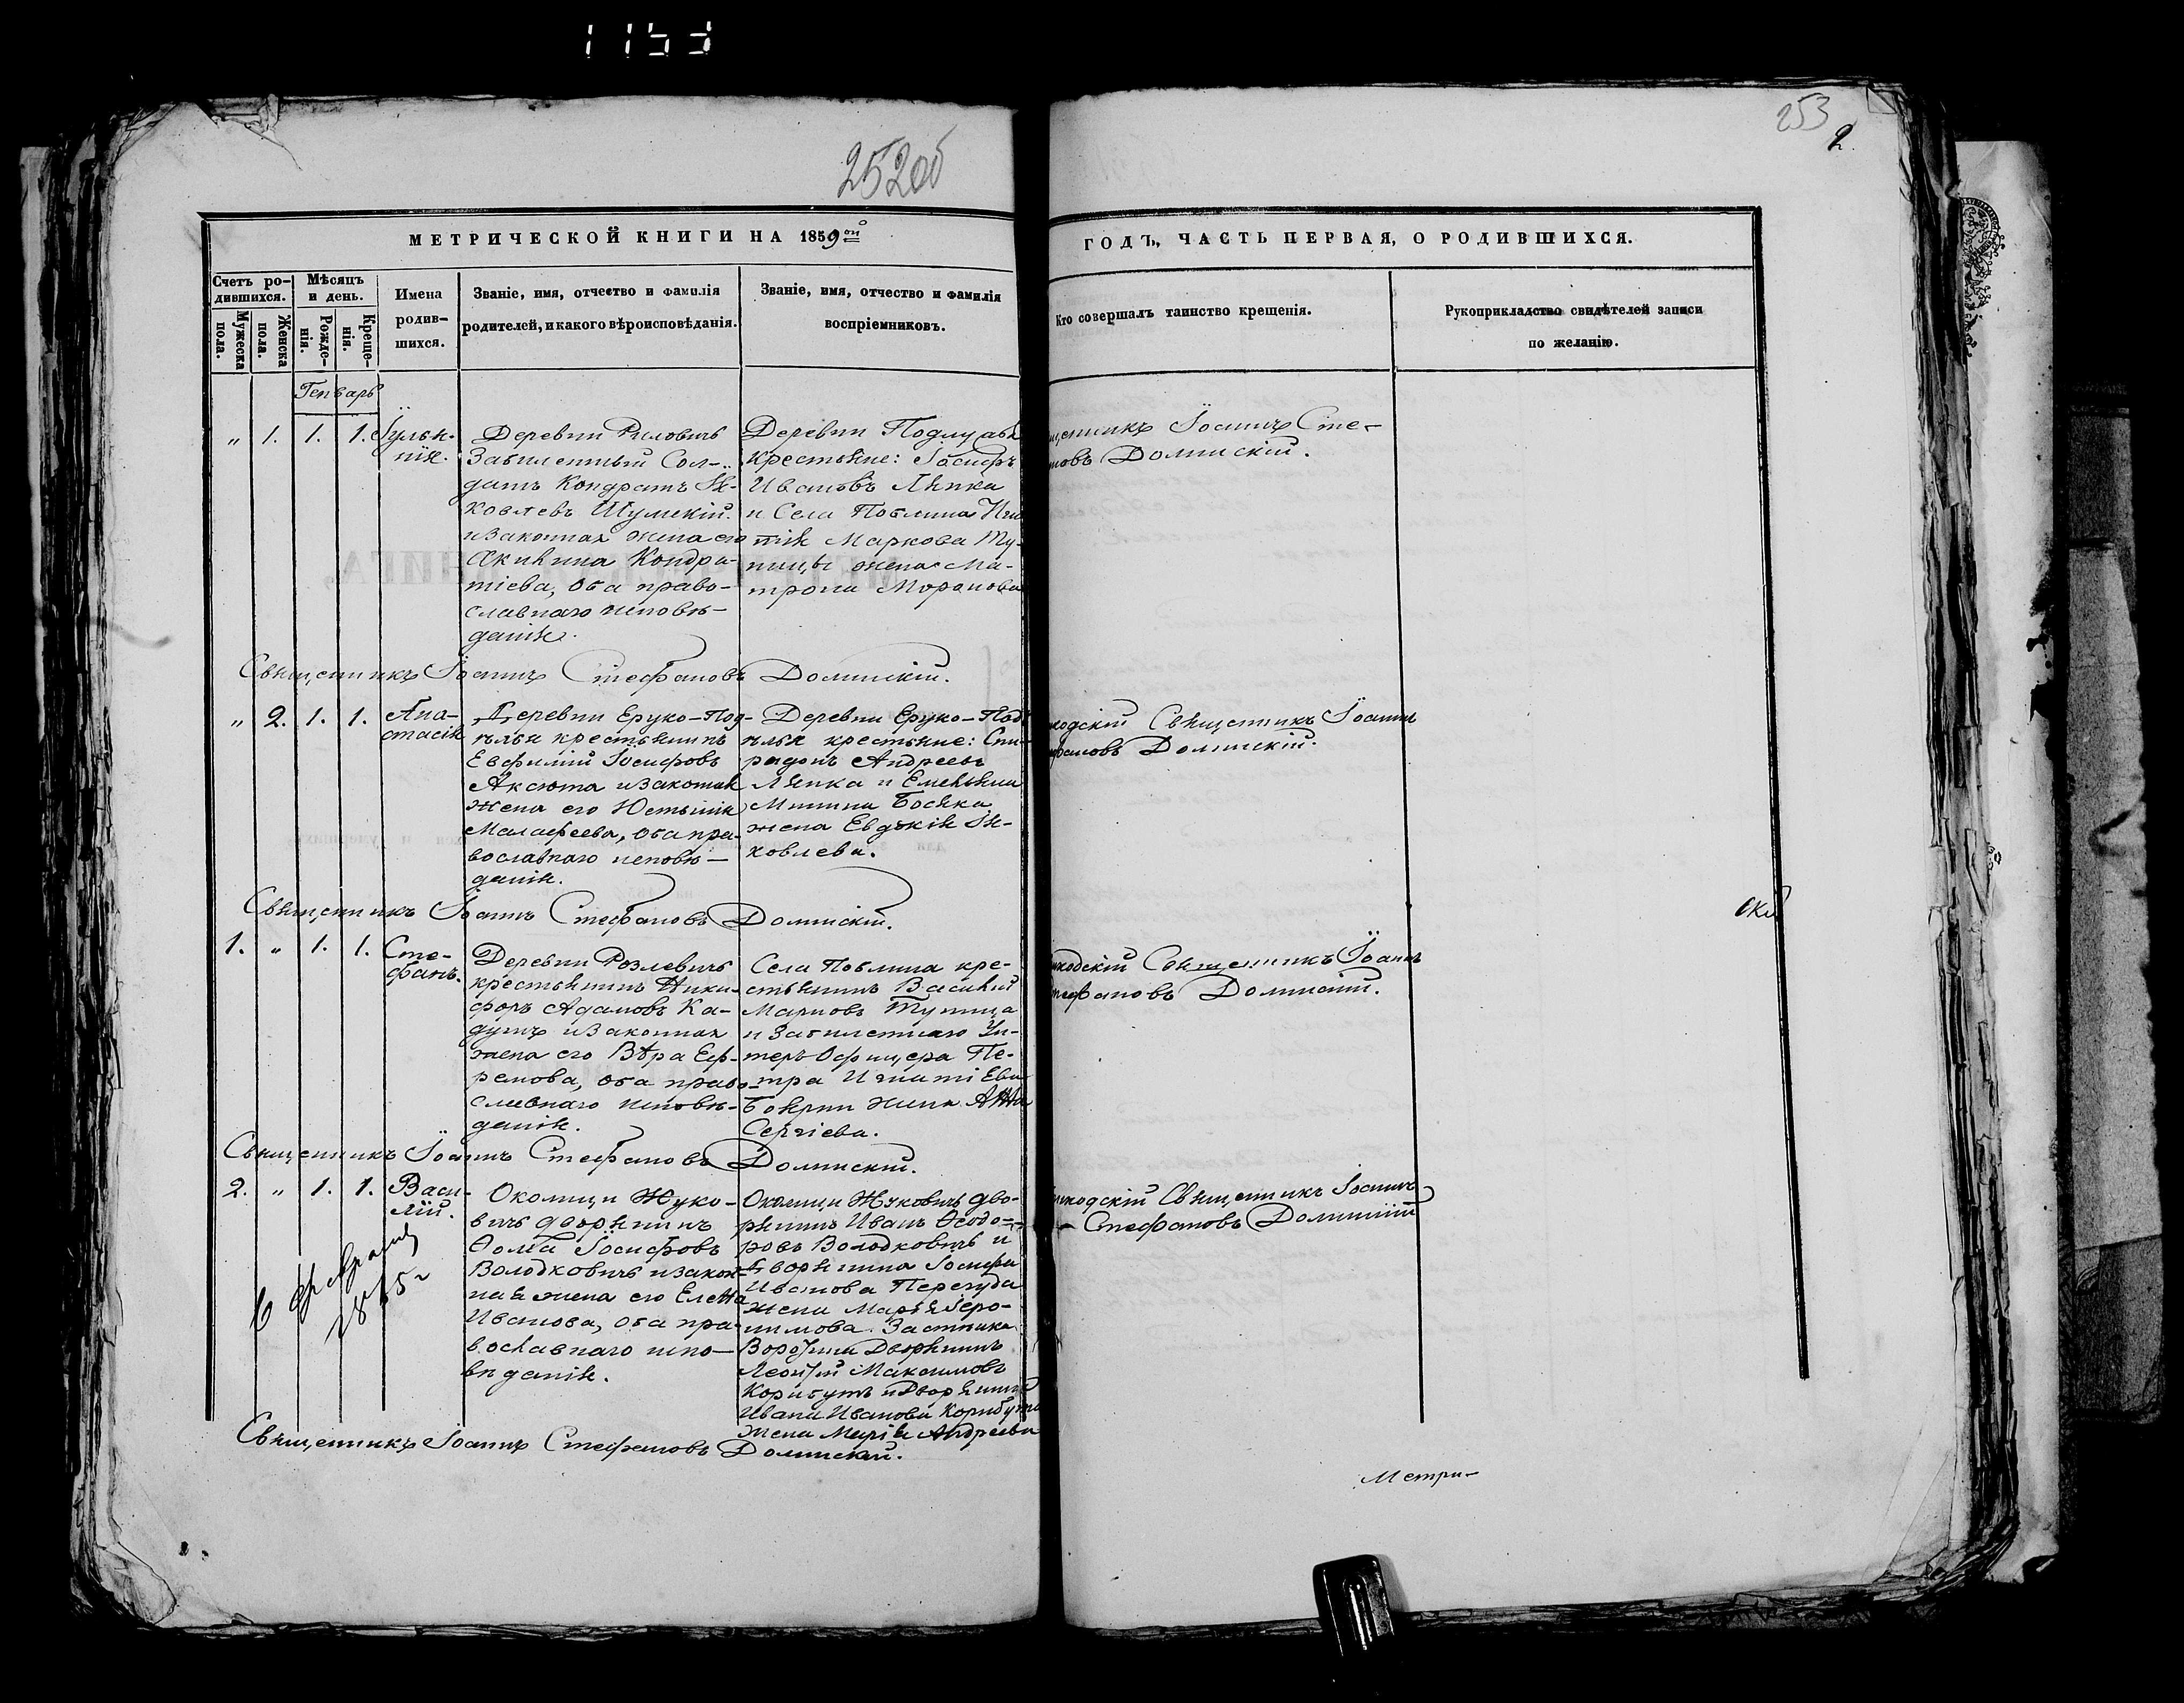 252об
253
2.
МЕТРИЧЕСКОЙ КНИГИ НА 1859ый
ГОДЪ, ЧАСТЬ ПЕРВАЯ, О РОДИВШИХСЯ.
Счетъ ро-
дившихся.
Мужеска
пола.
Женска
пола.
Мѣсяцъ
и день.
Рожде-
нія.
Креще-
нія.
Имена
родив-
шихся.
Званіе, имя, отчество и фамилія
родителей, и какого вѣроисповѣданія.
Званіе, имя, отчество и фамилія
воспріемниковъ.
Кто совершалъ таинство крещенія.
Рукоприкладство свидѣтелей записи
по желанію.
Генварь
„ 1. 1. 1. Іульи-
нія.
Деревни
Забилетный Сол-
датъ Кондратъ Я-
ковлевъ Шумскій
и законная жена его
Акилина Кондра-
тіева, оба право-
славнаго исповѣ-
данія.
Деревни
крестьяне: Іосифъ
Ивановъ Ляпка
и Села
Маркова Ту-
пицы жена Ма-
трона
Іоаннъ Сте-
Долинскій.
Священникъ Іоаннъ Стефановъ Долинскій.
„ 2. 1. 1. Ана-
стасія
Деревни Еруко-Под-
крестьянинъ
Евфимій Іосифовъ
Аксюта и законая
жена его Юстинія
Малафеева, оба пра-
вославнаго исповѣ-
данія.
Деревни Еруко-Под
крестьяне: Спи-
ридонъ Андреевъ
Ляпка и Емельяна
Босяка
жена Евдокія Я-
ковлева.
Священникъ Іоаннъ
Долинскій.
Священникъ Іоаннъ Стефановъ Долинскій.
1. „ 1. 1. Сте-
фанъ.
Деревни Розлевичъ
крестьянинъ Ники-
форъ Адамовъ Ка-
душъ и законная
жена его Вѣра Еф-
ремова, оба право-
славнаго исповѣ-
данія.
Села кре-
стьянинъ Василій
Марковъ Тупица
и Забилетнаго Ун-
теръ-Офицера Пе-
тра
жена Анна
Сергіева.
Священникъ Іоаннъ
Долинскій.
Священникъ Іоаннъ Стефановъ Долинскій.
2. „ 1. 1. Васи-
лій.
6 февраля
Околицы Жуко-
вичъ дворянинъ
Ѳома Іосифовъ
Володковичъ и закон-
ная жена его Елена
Иванова, оба пра-
вославнаго испо-
вѣданія.
Околицы Жуковичъ дво-
рянинъ Иванъ Ѳеодо-
ровъ Володковичъ и
Дворянина Іосифа
Иванова
жена Марья Іеро-
нимова. Застѣнка
Дворянинъ
Леонтій Максимовъ
Корибутъ и Дворянина
Ивана Иванова Корибута
жена Марія Андреева
Священникъ Іоаннъ
Стефановъ Долинскій
Священникъ Іоаннъ Стефановъ Долинскій.
Метри-